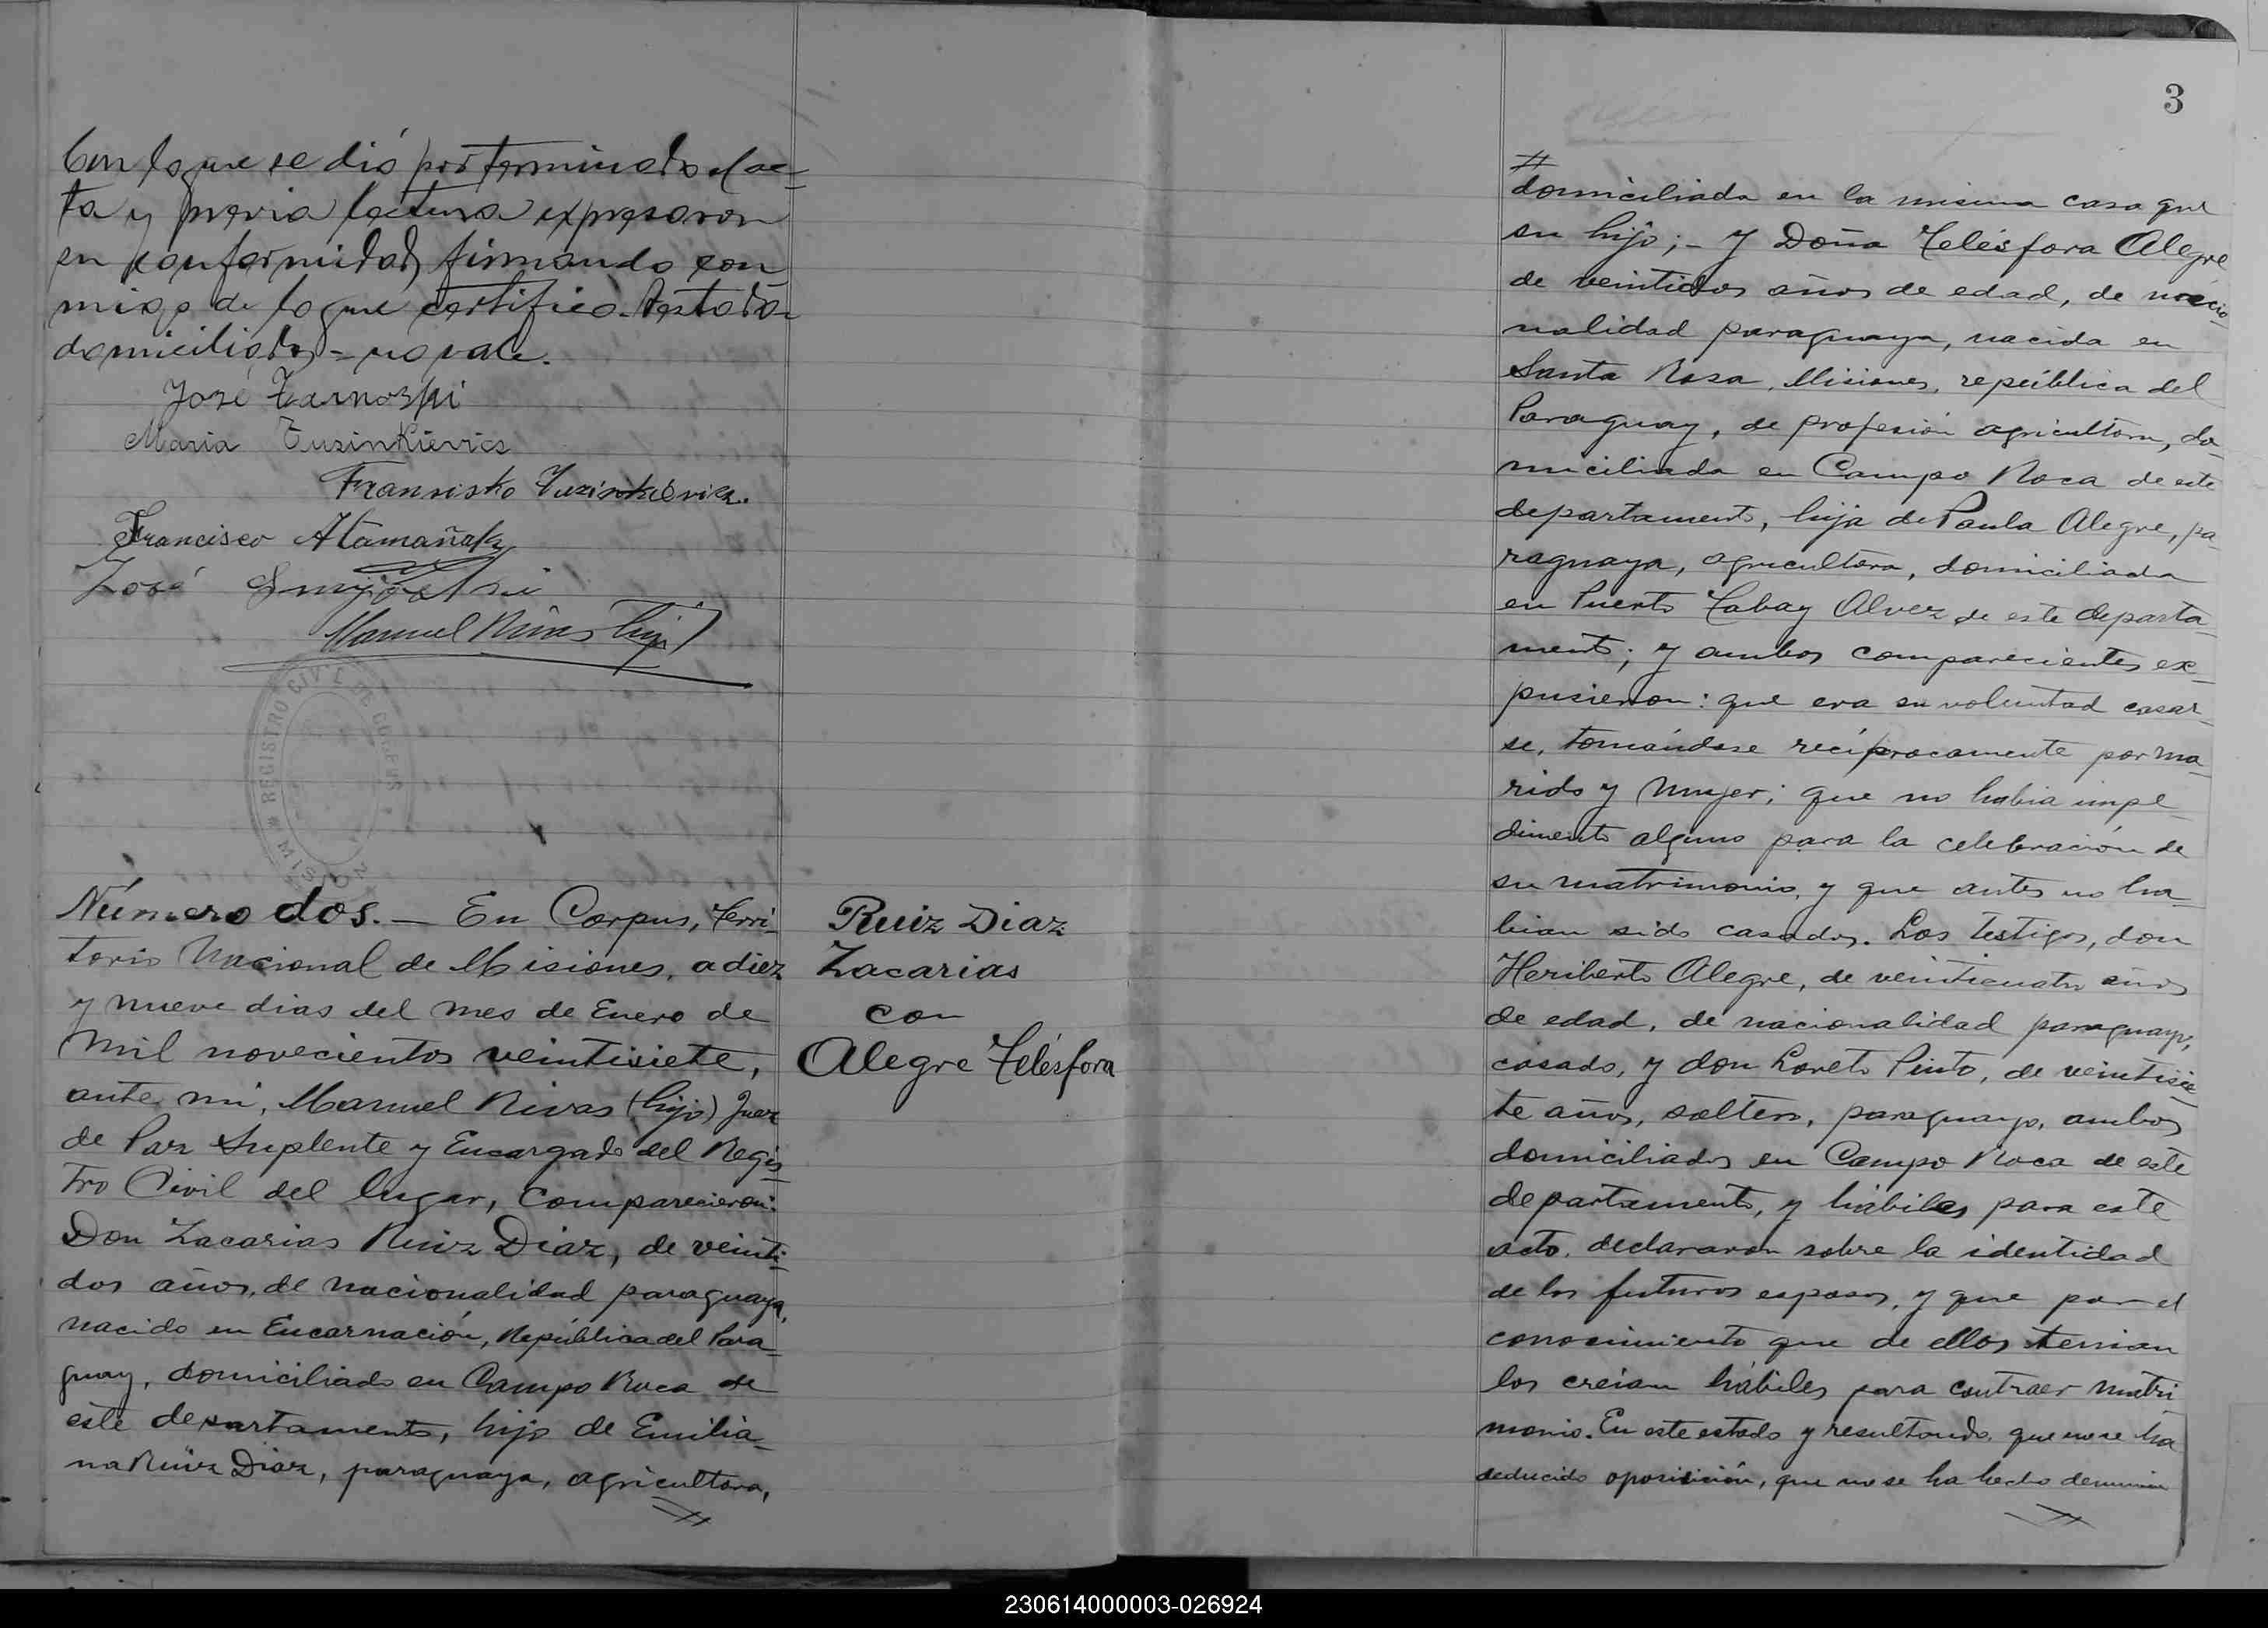 Con lo que se dió por terminada el ac-
ta y previa lectura expresaron
su conformidad firmando con
migo de lo que certifico. Testado-
domiciliado = no vale.
José Tarnoski
Maria Tuzinkievics
Fransisko Tuzinkievicz.
Francisco Atamañuk
José
Manuel Rivas hijo
REGISTRO CIVIL DE CORPUS
MISIONES
Número dos. — En Corpus, Terri-
torio Nacional de Misiones, a diez
y nueve dias del mes de Enero de
mil novecientos veintisiete,
ante mi, Manuel Rivas (hijo) Juez
de Paz Suplente y Encargado del Regis-
tro Civil del lugar, comparecieron:
Don Zacarias Ruiz Diaz, de veinti-
dos años, de nacionalidad paraguaya,
nacido en Encarnación, República del Para-
guay, domiciliado en Campo Roca de
este departamento, hijo de Emilia-
na Ruiz Diaz, paraguaya, agricultora,
#
Ruiz Diaz
Zacarias
con
Alegre Telésfora
3
#
domiciliada en la misma casa que
su hijo; - y Doña Telésfora Alegre
de veintidos años de edad, de nacio-
nalidad paraguaya, nacida en
Santa Rosa, Misiones, república del
Paraguay, de profesión agricultora, do-
miciliada en Campo Roca de este
departamento, hija de Paula Alegre, pa-
raguaya, agricultora, domiciliada
en Puerto Tabay Alvez de este departa-
mento; y ambos comparecientes ex-
pusieron: que era su voluntad casar-
se, tomándose recíprocamente por ma-
rido y mujer; que no habia impe-
dimento alguno para la celebración de
su matrimonio, y que antes no ha-
bian sido casados. Los testigos, don
Heriberto Alegre, de veinticuatro años
de edad, de nacionalidad paraguayo,
casado, y don Loreto Pinto, de veintisie-
te años, soltero, paraguayo, ambos
domiciliados en Campo Roca de este
departamento, y hábiles para este
acto, declararon sobre la identidad
de los futuros esposos, y que por el
conocimiento que de ellos tenian
los creían hábiles para contraer matri-
monio. En este estado y resultando, que no se ha
deducido oposición, que no se ha hecho denuncia
#
230614000003-026924